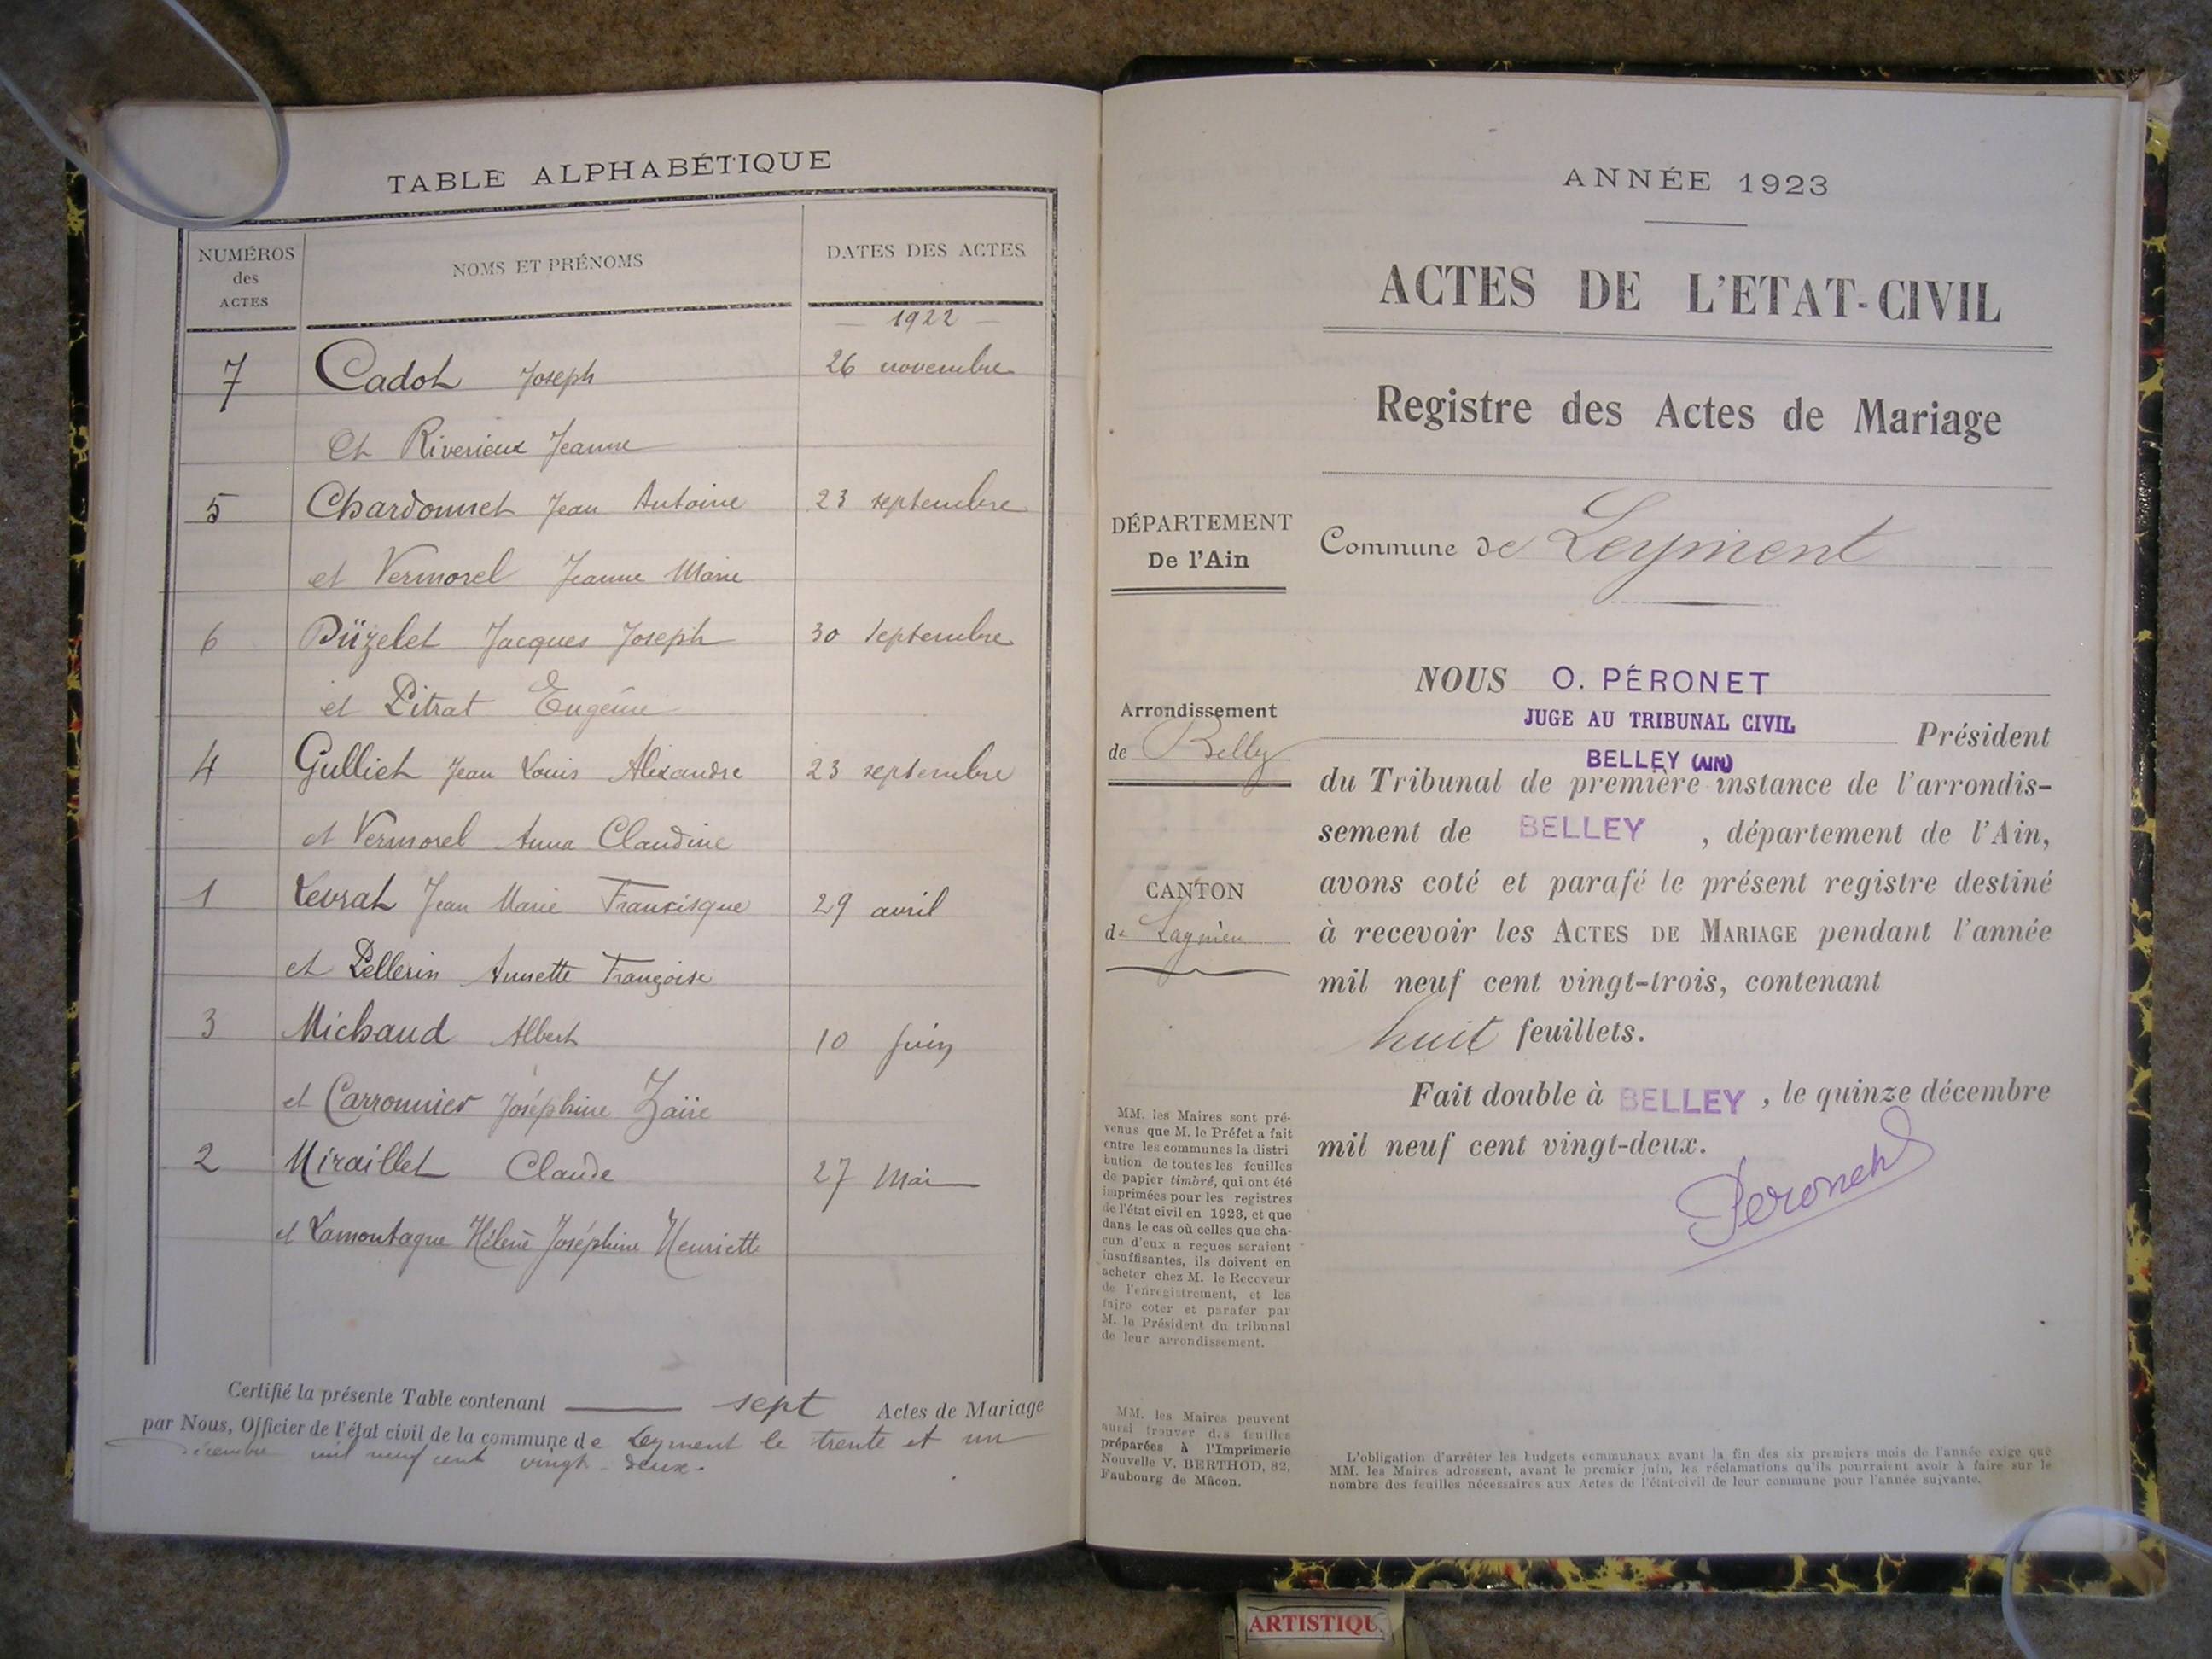 TABLE ALPHABÉTIQUE
NUMÉROS
des
ACTES
NOMS ET PRÉNOMS
DATES DES ACTES
— 1922 —
7 Cadot Joseph 26 novembre
Et Riverieux Jeanne
5 Chardonnet Jean Antoine 23 septembre
et Vermorel Jeanne Marie
6 Düzelet Jacques Joseph 30 Septembre
et Pitrat Eugénie
4 Gulliet Jean Louis Alexandre 23 septembre
et Vermorel Anna Claudine
1 Levrat Jean Marie Francisque 29 avril
et Pellerin Annette Françoise
3 Michaud Albert 10 Juin
et Carronnier Joséphine Zaïre
2 Miraillet Claude 27 Mai
et Lamontagne Hélène Joséphine Henriette
Certifié la présente Table contenant sept Actes de Mariage
par Nous, Officier de l'état civil de la commune de Leyment le trente et un
décembre mil neuf cent vingt-deux.
ANNÉE 1923
ACTES DE L'ETAT-CIVIL
Registre des Actes de Mariage
DÉPARTEMENT
De l'Ain
Commune de Leyment
Arrondissement
de Belley
CANTON
de Lagnieu
NOUS O. PÉRONET
JUGE AU TRIBUNAL CIVIL
Président
BELLEY (AIN)
du Tribunal de première instance de l'arrondis-
sement de BELLEY, département de l'Ain,
avons coté et parafé le présent registre destiné
à recevoir les ACTES DE MARIAGE pendant l'année
mil neuf cent vingt-trois, contenant
huit feuillets.
Fait double à BELLEY, le quinze décembre
mil neuf cent vingt-deux.
Peronet
MM. les Maires sont pré-
venus que M. le Préfet a fait
entre les communes la distri
bution de toutes les feuilles
de papier timbré, qui ont été
imprimées pour les registres
de l'état civil en 1923, et que
dans le cas où celles que cha-
cun d'eux a reçues seraient
insuffisantes, ils doivent en
acheter chez M. le Receveur
de l'enregistrement, et les
faire coter et parafer par
M. le Président du tribunal
de leur arrondissement.
MM. les Maires peuvent
aussi trouver des feuilles
préparées à l'Imprimerie
Nouvelle V. BERTHOD, 82,
Faubourg de Mâcon.
L'obligation d'arrêter les budgets communaux avant la fin des six premiers mois de l'année exige que
MM. les Maires adressent, avant le premier juin, les réclamations qu'ils pourraient avoir à faire sur le
nombre des feuilles nécessaires aux Actes de l'état-civil de leur commune pour l'année suivante.
ARTISTIQU